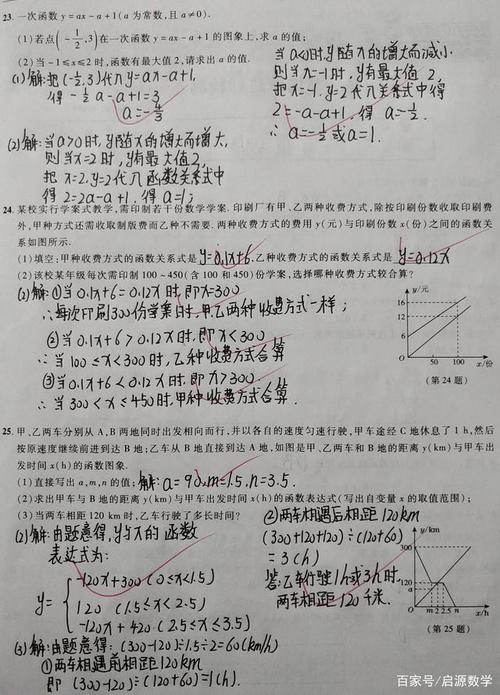 23. 一次函数 y=ax-a+1(a 为常数,且 a≠0).
(1)若点(-1/2,3)在一次函数 y=ax-a+1 的图象上,求 a 的值;
(2)当 -1≤x≤2 时,函数有最大值 2,请求出 a 的值.
(1)解:把(-1/2,3)代入y=ax-a+1,
得 -1/2a-a+1=3
a=-4/3
(2)解:当a>0时,y随x的增大而增大,
则当x=2时,y有最大值2,
把x=2,y=2代入函数关系式中
得 2=2a-a+1, 得 a=1;
当a<0时,y随x的增大而减小.
则当x=-1时,y有最大值 2,
把x=-1,y=2代入关系式中得
2=-a-a+1, 得 a=-1/2.
∴ a=-1/2或a=1.
24. 某校实行学案式教学,需印制若干份数学学案.印刷厂有甲、乙两种收费方式,除按印刷份数收取印刷费
外,甲种方式还需收取制版费而乙种不需要.两种收费方式的费用 y(元)与印刷份数 x(份)之间的函数关
系如图所示.
(1)填空:甲种收费方式的函数关系式是 y=0.1x+6,乙种收费方式的函数关系式是 y=0.12x
(2)该校某年级每次需印制 100~450(含 100 和 450)份学案,选择哪种收费方式较合算?
(2)解:①当0.1x+6=0.12x时,即x=300
∴每次印刷300份学案时,甲乙两种收费方式一样;
②当 0.1x+6>0.12x时,即x<300
∴当 100≤x<300时,乙种收费方式合算
③当0.1x+6<0.12x时,即x>300.
∴当 300<x≤450时,甲种收费方式合算.
y/元
16
12
8
6
0 50 100 x/份
(第 24 题)
25. 甲、乙两车分别从 A,B 两地同时出发相向而行,并以各自的速度匀速行驶,甲车途经 C 地休息了 1 h,然后
按原速度继续前进到达 B 地;乙车从 B 地直接到达 A 地,如图是甲、乙两车和 B 地的距离 y(km)与甲车出
发时间 x(h)的函数图象.
(1)直接写出 a,m,n 的值;解:a=90,m=1.5,n=3.5.
(2)求出甲车与 B 地的距离 y(km)与甲车出发时间 x(h)的函数表达式(写出自变量 x 的取值范围);
(3)当两车相距 120 km 时,乙车行驶了多长时间?
(2)解:由题意得,y与x的 函数
表达式为:
y= -120x+300 (0≤x≤1.5)
120 (1.5≤x<2.5)
-120x+420 (2.5≤x≤3.5)
(3)解:由题意得:(300-120)÷1.5÷2=60(km/h)
①两车相遇前相距120km
即 (300-120)÷(120+60)=1(h).
②两车相遇后相距 120km
(300+120+120)÷(120+60)
=3(h)
答:乙车行驶1h或3h时,
两车相距120千米.
y/km
300
120
a
0 m 2 2.5 n x/h
(第 25 题)
百家号/启源数学